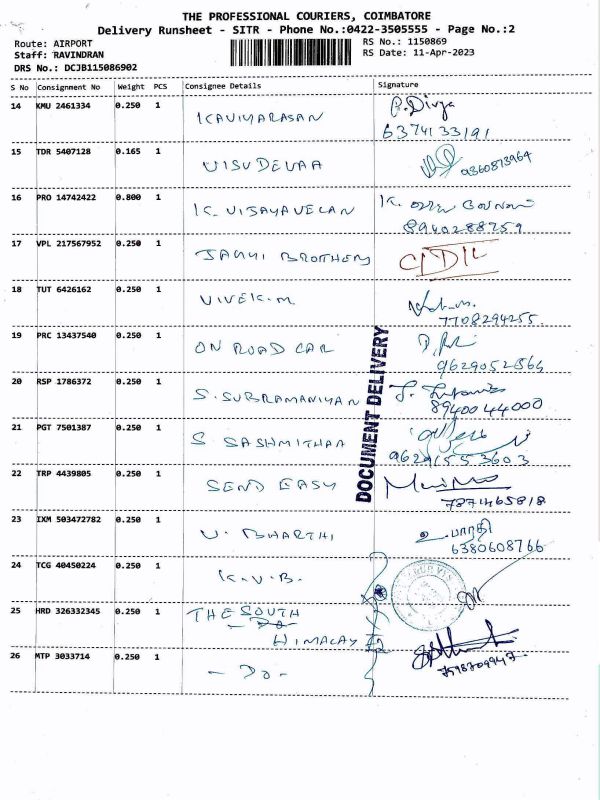 THE PROFESSIONAL COURIERS, COIMBATORE
Delivery Runsheet - SITR - Phone No.:0422-3505555 - Page No.:2
Route: AIRPORT
Staff: RAVINDRAN
DRS No.: DCJB115086902
RS No.: 1150869
RS Date: 11-Apr-2023
S No Consignment No Weight PCS Consignee Details Signature
14 KMU 2461334 0.250 1 KAVIYARASAN P.Divya
6374133191
15 TDR 5407128 0.165 1 VISUDEVAA 9360873964
16 PRO 14742422 0.800 1 K. VIJAYAVELAN K.
8940288759
17 VPL 217567952 0.250 1 BROTHERS
18 TUT 6426162 0.250 1 VIVEK.M
7708294255
19 PRC 13437540 0.250 1 ON ROAD CAR
9629052864
20 RSP 1786372 0.250 1 S.SUBRAMANIYAN
8940044000
21 PGT 7501387 0.250 1 S SASHMITHAA
96291553603
22 TRP 4439805 0.250 1 SEND EASY
7871465818
23 IXM 503472782 0.250 1 U. BHARTHI உ.பாரதி
6380608766
24 TCG 40450224 0.250 1 K.V.B.
25 HRD 326332345 0.250 1 THE SOUTH
- Do -
26 MTP 3033714 0.250 1 - Do -
DOCUMENT DELIVERY